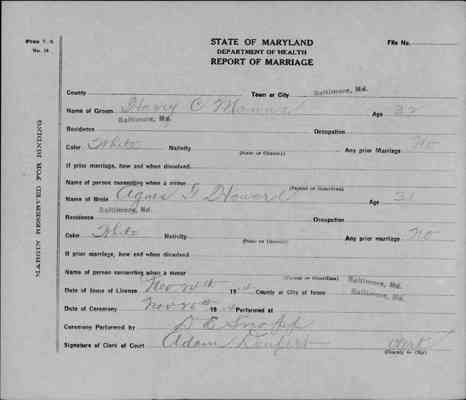 Form V. S.
No. 14
STATE OF MARYLAND
DEPARTMENT OF HEALTH
REPORT OF MARRIAGE
File No.
MARGIN RESERVED FOR BINDING
County Town or City Baltimore, Md.
Name of Groom Harry C Age 32
Residence Baltimore, Md. Occupation
Color White Nativity (State or Country) Any prior Marriage No
If prior marriage, how and when dissolved.
Name of person consenting when a minor (Parent or Guardian)
Name of Bride Agnes Howard Age 31
Residence Baltimore, Md. Occupation
Color White Nativity (State or Country) Any prior Marriage No
If prior marriage, how and when dissolved
Name of person consenting when a minor (Parent or Guardian)
Date of Issue of License Nov 19 County or City of Issue Baltimore, Md.
Date of Ceremony Nov 19 Performed at Baltimore, Md.
Ceremony Performed by D E Snapp
Signature of Clerk of Court Adam Deupert
(County or City)